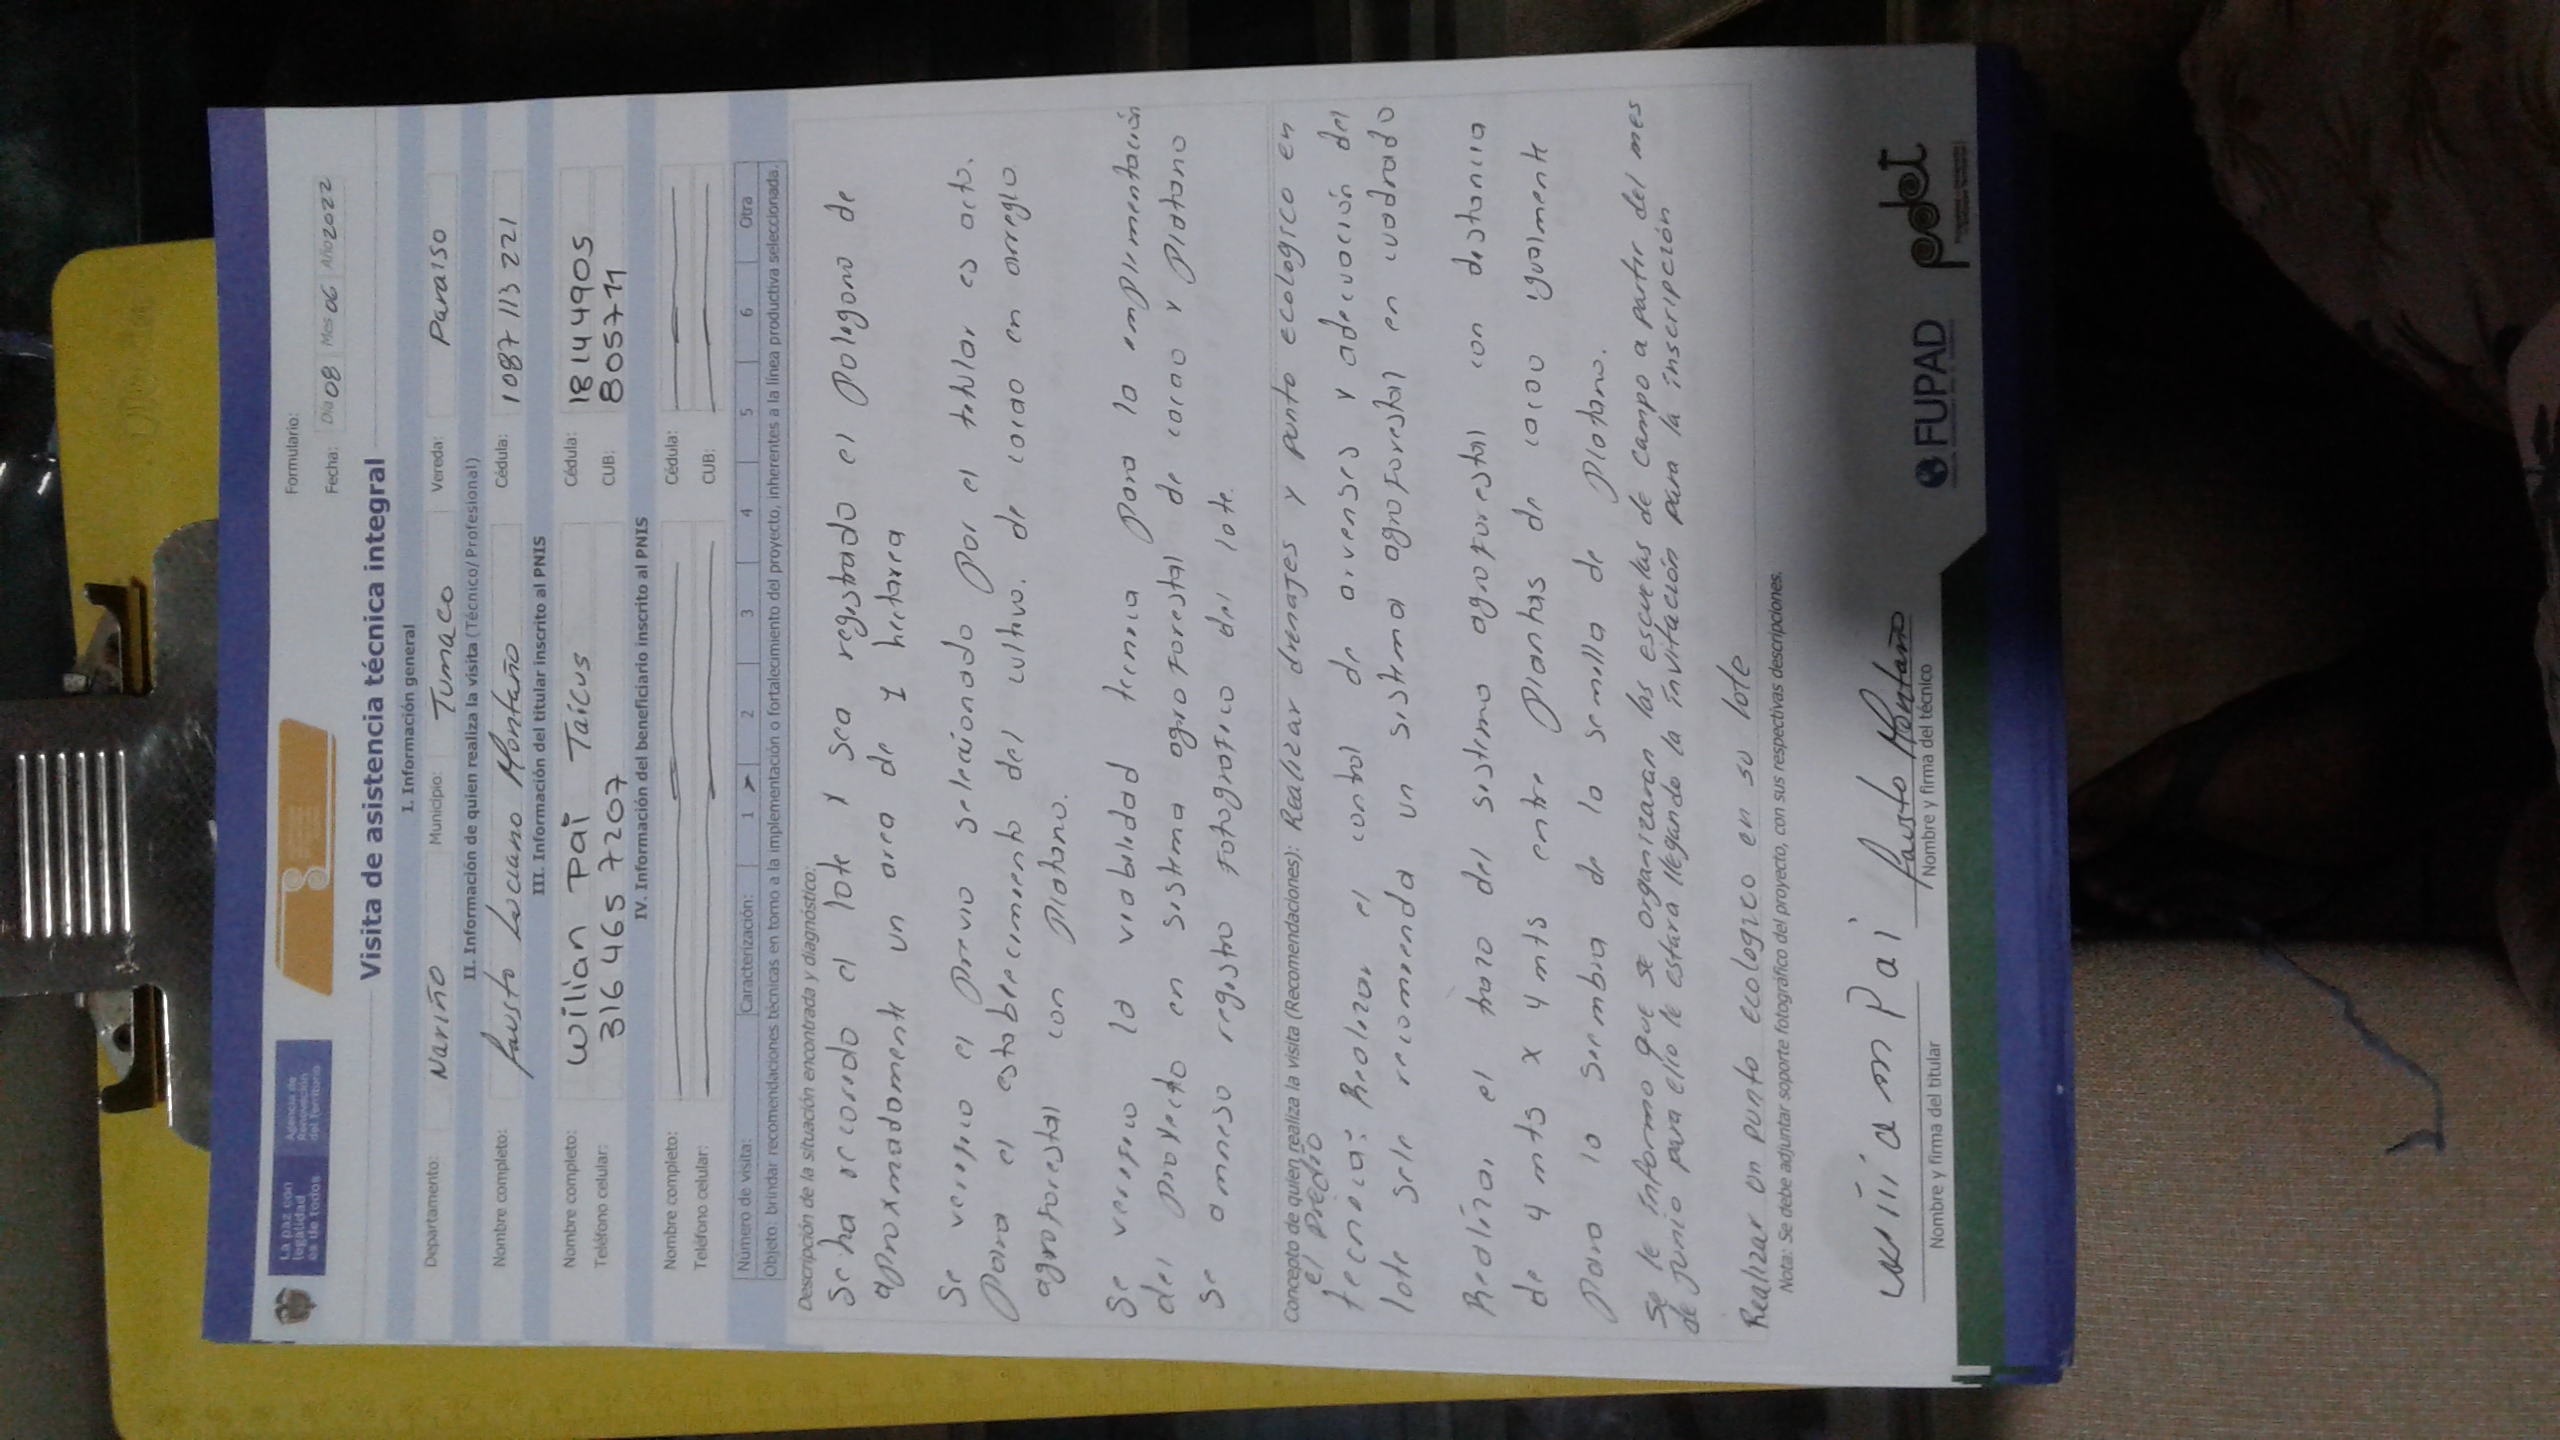 La paz con
legalidad
es de todos
Agencia de
Renovación
del Territorio
Formulario:
Fecha: Día 08 Mes 06 Año 2022
Visita de asistencia técnica integral
I. Información general
Departamento: Nariño Municipio: Tumaco Vereda: Paraiso
II. Información de quien realiza la visita (Técnico/Profesional)
Nombre completo: Fausto Lucano Montaño Cédula: 1087 113 221
III. Información del titular inscrito al PNIS
Nombre completo: Wilian Pai Taicus Cédula: 18144905
Teléfono celular: 316 465 7207 CUB: 8057-11
IV. Información del beneficiario inscrito al PNIS
Nombre completo: Cédula:
Teléfono celular: CUB:
Número de visita: Caracterización: 1 2 3 4 5 6 Otra
Objeto: brindar recomendaciones técnicas en torno a la implementación o fortalecimiento del proyecto, inherentes a la línea productiva seleccionada.
Descripción de la situación encontrada y diagnóstico:
Se ha recorrido el lote y sea registrado el Pologono de
aproximadamente un area de 1 hectarea
Se verifico el previo seleccionado por el titular es acto.
para el establecimiento del cultivo. de cacao en arreglo
agroforestal con platano.
Se verifico la viabilidad tecnica para la implementación
del proyecto en sistema agroforestal de cacao y platano
Se anneso registro fotografico del lote.
Concepto de quien realiza la visita (Recomendaciones): Realizar drenajes y punto ecologico en
el predio
tecnica: Realizar el control de arvenses y adecuación del
lote sele recomienda un sistema agroforestal en cuadrado
Realizar el trazo del sistema agroforestal con distancia
de 4 mts x 4 mts entre plantas de cacao igualmente
para la siembra de la semilla de platano.
Se le informo que se organizaran las escuelas de campo a partir del mes
de junio para ello le estara llegando la invitación para la inscripción
Realizar un punto ecologico en su lote
Nota: Se debe adjuntar soporte fotográfico del proyecto, con sus respectivas descripciones.
william Pai Fausto Montaño
Nombre y firma del titular Nombre y firma del técnico
FUPAD pdet